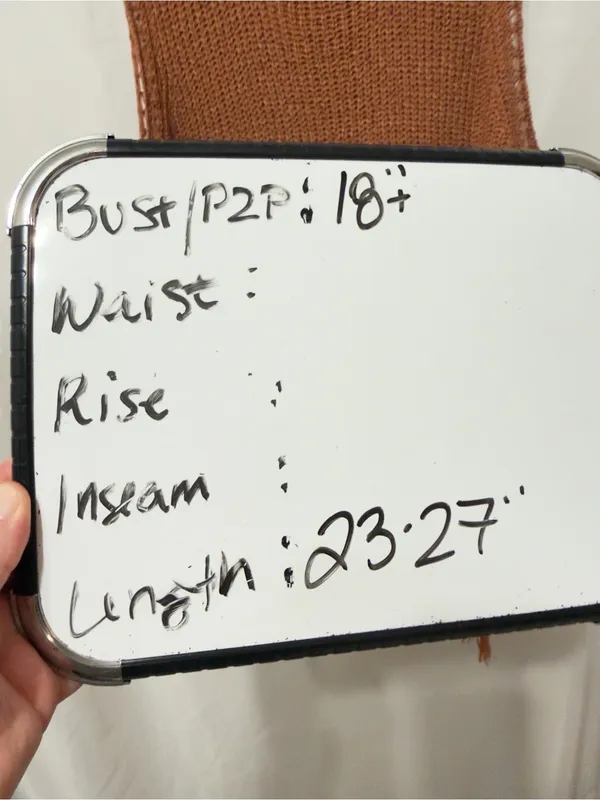 Bust/P2P: 18"+
Waist:
Rise :
Inseam :
Length: 23.27"